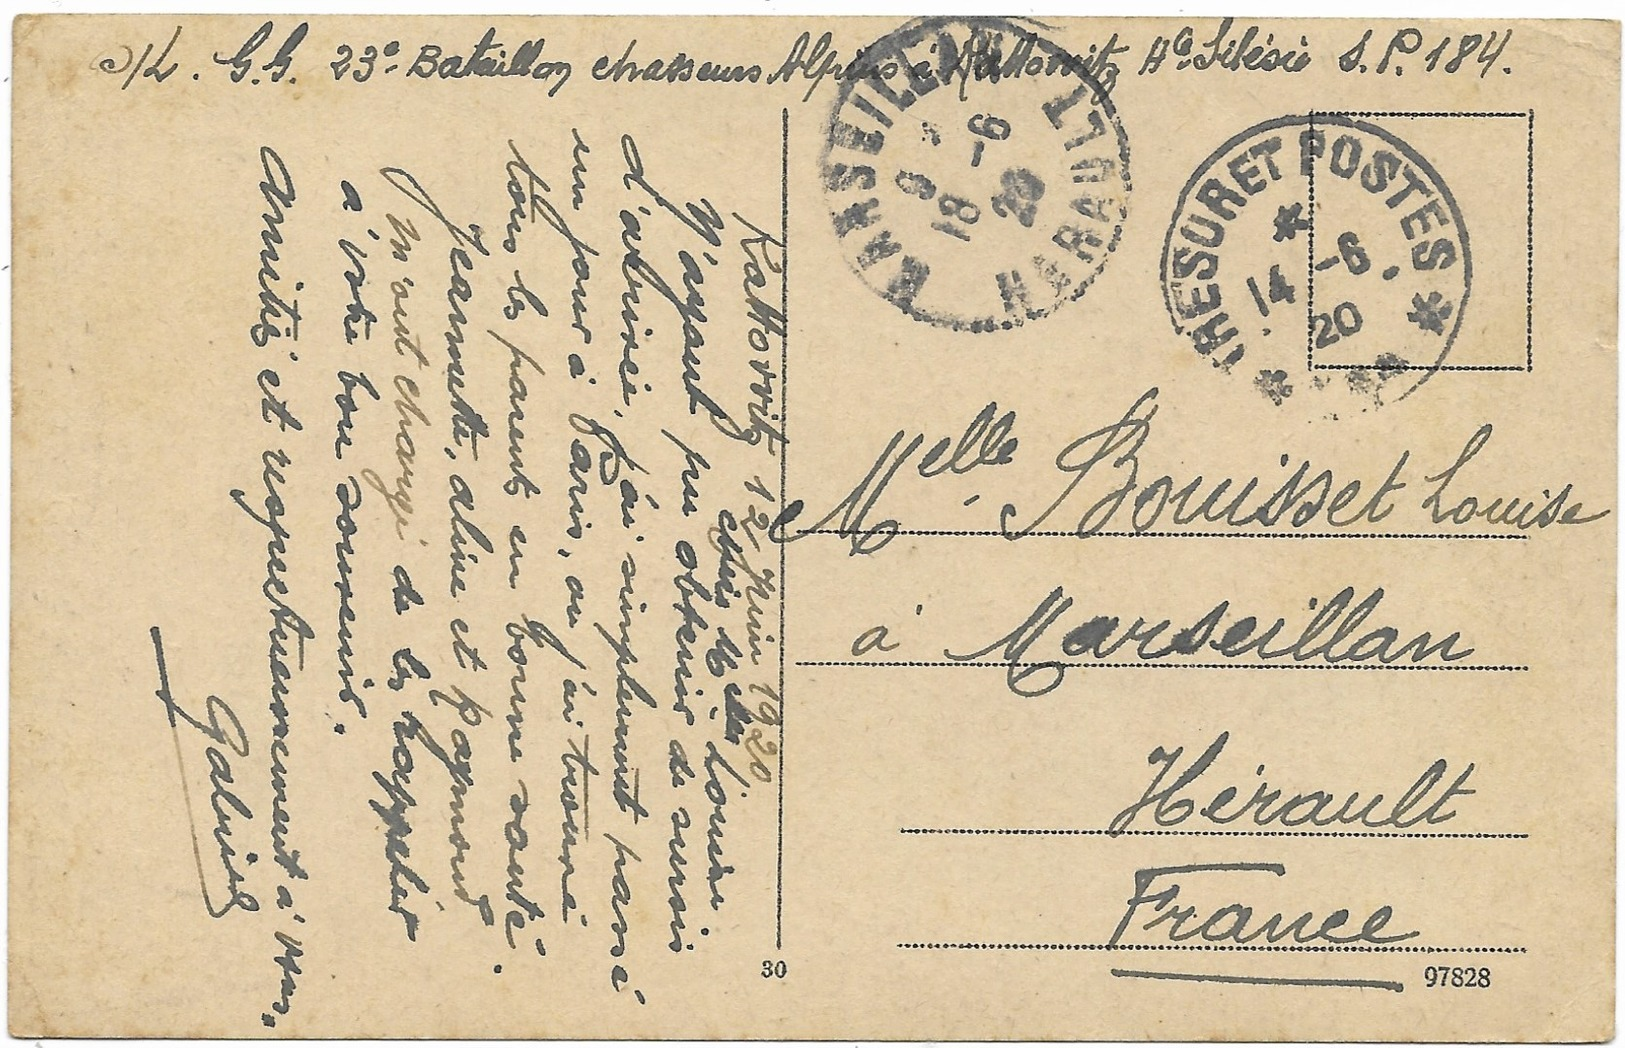 S/L. G.G. 23e Bataillon chasseurs Alpins à Kattowitz Hte Silésie S.P. 184.
MARSEILLAN
HERAULT
18 -6
20
TRESOR ET POSTES
14 -6
20
Melle Bouisset Louise
à Marseillan
Hérault
France
30
97828
Kattowitz 12 Juin 1920
Chère Melle Louise
N'ayant pu obtenir de sursis
d'arrivée, j'ai simplement passé
un jour à Paris, où j'ai trouvé
tous les parents en bonne santé.
Jeannette, aline et Raymond
m'ont chargé de les rappeler
a votre bon souvenir.
Amitiés et respectueusement à vous.
Gabriel